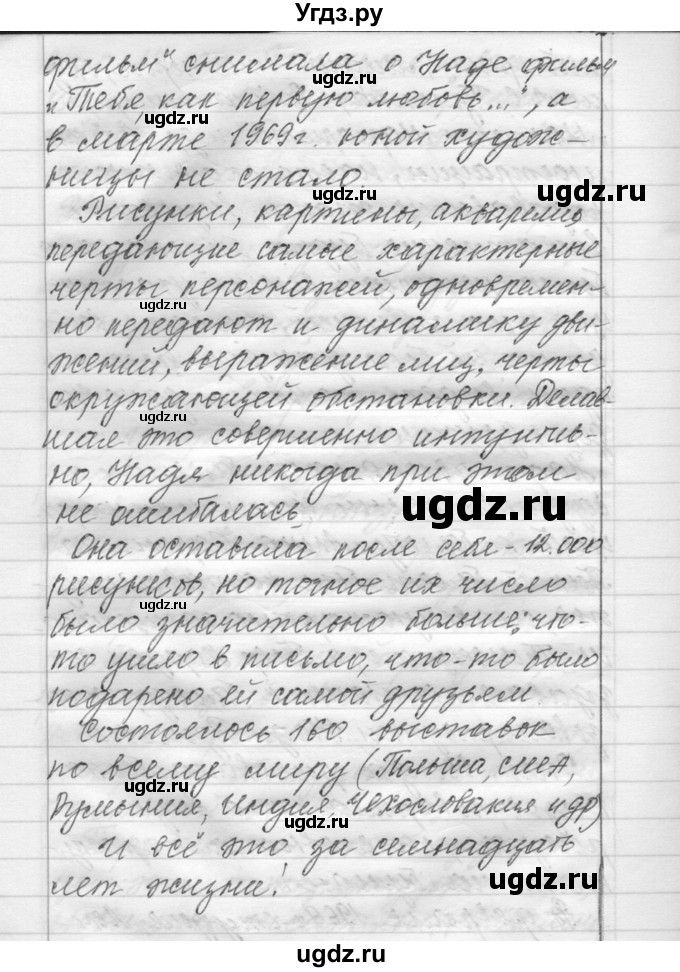 Угдз.ру
фильм" снимала о Наде фильм
"Тебя, как первую любовь...", а
в марте 1969г. юной худож-
ницы не стало.
Рисунки, картины, акварели,
передающие самые характерные
черты персонажей, одновремен-
но передают и динамику дви-
жений, выражение лиц, черты
окружающей обстановки. Делав-
шая это совершенно интуитив-
но, Надя никогда при этом
не ошибалась.
Она оставила после себя - 12.000
рисунков, но точное их число
было значительно больше: что-
то ушло в письмо, что-то было
подарено ей самой друзьям.
Состоялось 160 выставок
по всему миру (Польша, США,
Румыния, Индия, Чехословакия и др)
И всё это за семнадцать
лет жизни!
ugdz.ru
ugdz.ru
ugdz.ru
ugdz.ru
ugdz.ru
ugdz.ru
ugdz.ru
ugdz.ru
ugdz.ru
ugdz.ru
ugdz.ru
ugdz.ru
ugdz.ru